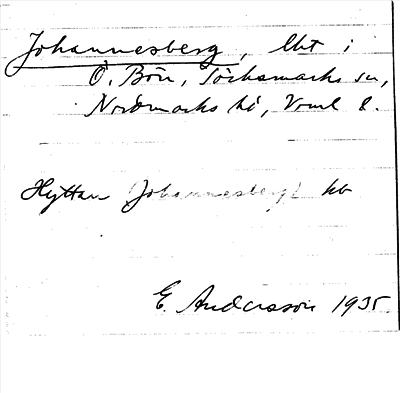 Johannesberg, lht i
Ö. Bön, Töcksmarks sn,
Nordmarks hd, Vrml l.
Hyttan Johannesberg kb
E. Andersson 1935.